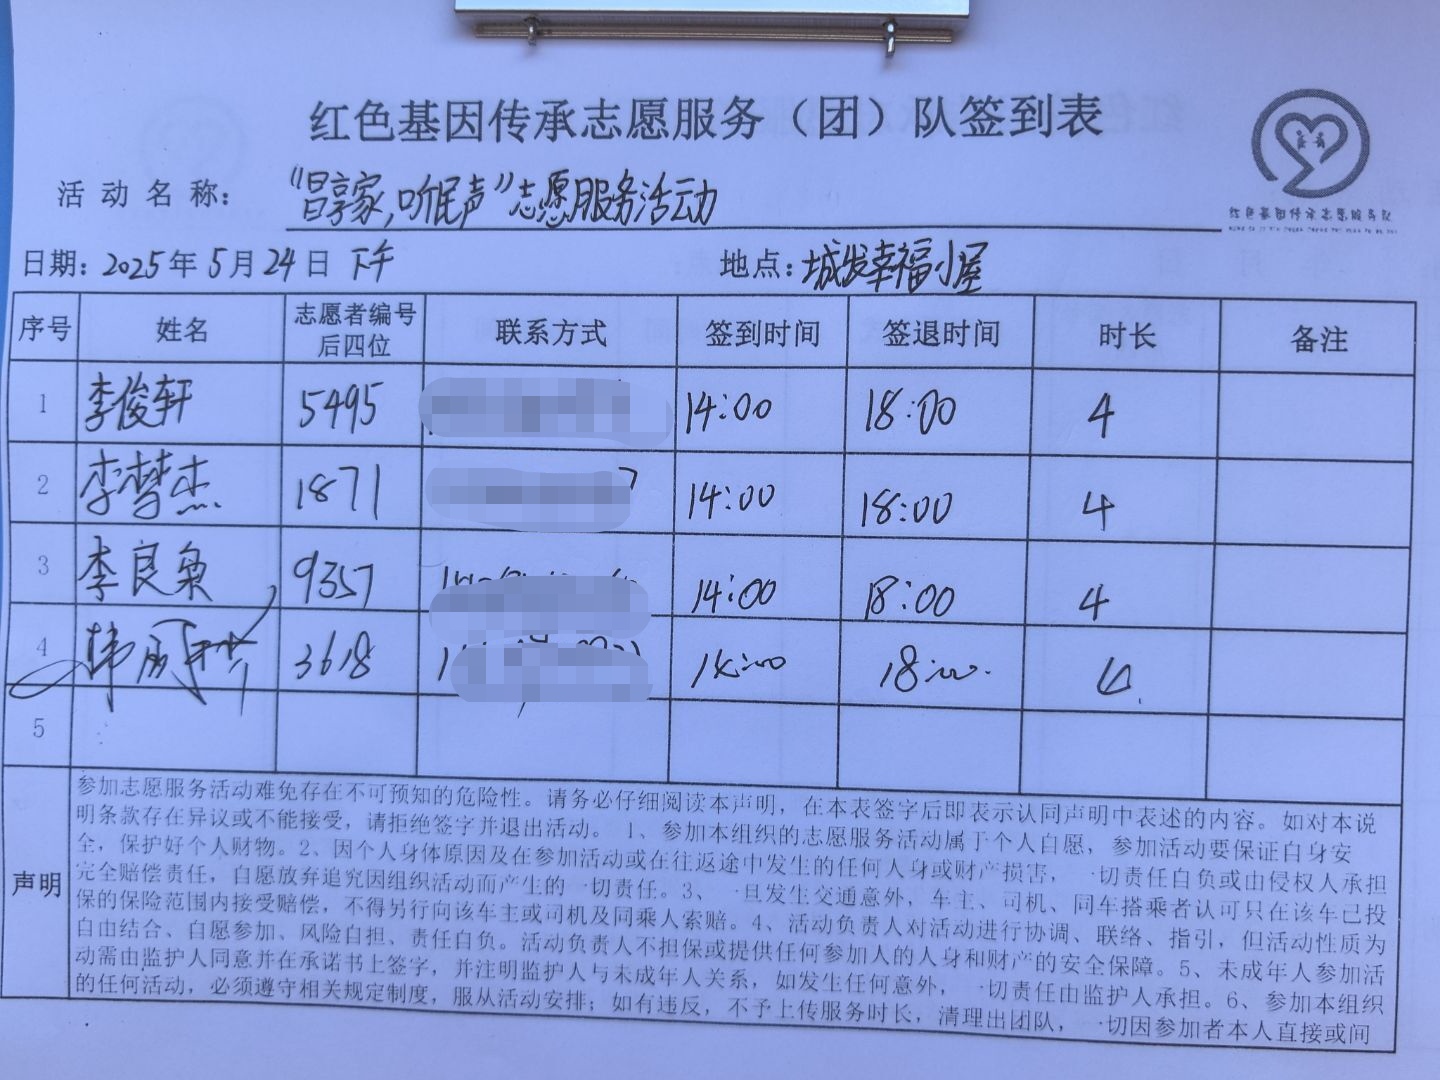 红色基因传承志愿服务（团）队签到表
活动名称： “昌享家，听民声”志愿服务活动
红色基因传承志愿服务队
日期：2025年5月24日 下午 地点：城发幸福小屋
序号 姓名 志愿者编号后四位 联系方式 签到时间 签退时间 时长 备注
1 李俊轩 5495 14:00 18:00 4
2 李梦杰 1871 14:00 18:00 4
3 李良枭 9357 14:00 18:00 4
4 韩 3618 14:00 18:00 4
5
声明
参加志愿服务活动难免存在不可预知的危险性。请务必仔细阅读本声明，在本表签字后即表示认同声明中表述的内容。如对本说
明条款存在异议或不能接受，请拒绝签字并退出活动。 1、参加本组织的志愿服务活动属于个人自愿，参加活动要保证自身安
全，保护好个人财物。2、因个人身体原因及在参加活动或在往返途中发生的任何人身或财产损害，一切责任自负或由侵权人承担
完全赔偿责任，自愿放弃追究因组织活动而产生的一切责任。3、一旦发生交通意外，车主、司机、同车搭乘者认可只在该车已投
保的保险范围内接受赔偿，不得另行向该车主或司机及同乘人索赔。4、活动负责人对活动进行协调、联络、指引，但活动性质为
自由结合、自愿参加、风险自担、责任自负。活动负责人不担保或提供任何参加人的人身和财产的安全保障。5、未成年人参加活
动需由监护人同意并在承诺书上签字，并注明监护人与未成年人关系，如发生任何意外，一切责任由监护人承担。6、参加本组织
的任何活动，必须遵守相关规定制度，服从活动安排；如有违反，不予上传服务时长，清理出团队，一切因参加者本人直接或间